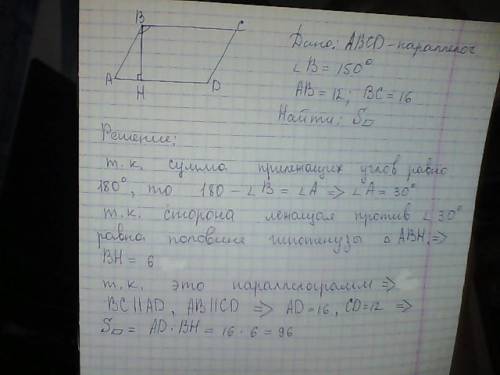 B
C
A
H
D
Дано: ABCD - параллелог
∠B = 150°
AB = 12; BC = 16
Найти: S▱
Решение:
т.к. сумма прилежащих углов равна
180°, то 180 - ∠B = ∠A => ∠A = 30°
т.к. сторона лежащая против ∠30°
равна половине гипотенузы △ABH, =>
BH = 6
т.к. это параллелограмм =>
BC ∥ AD, AB ∥ CD => AD = 16, CD = 12 =>
S▱ = AD · BH = 16 · 6 = 96